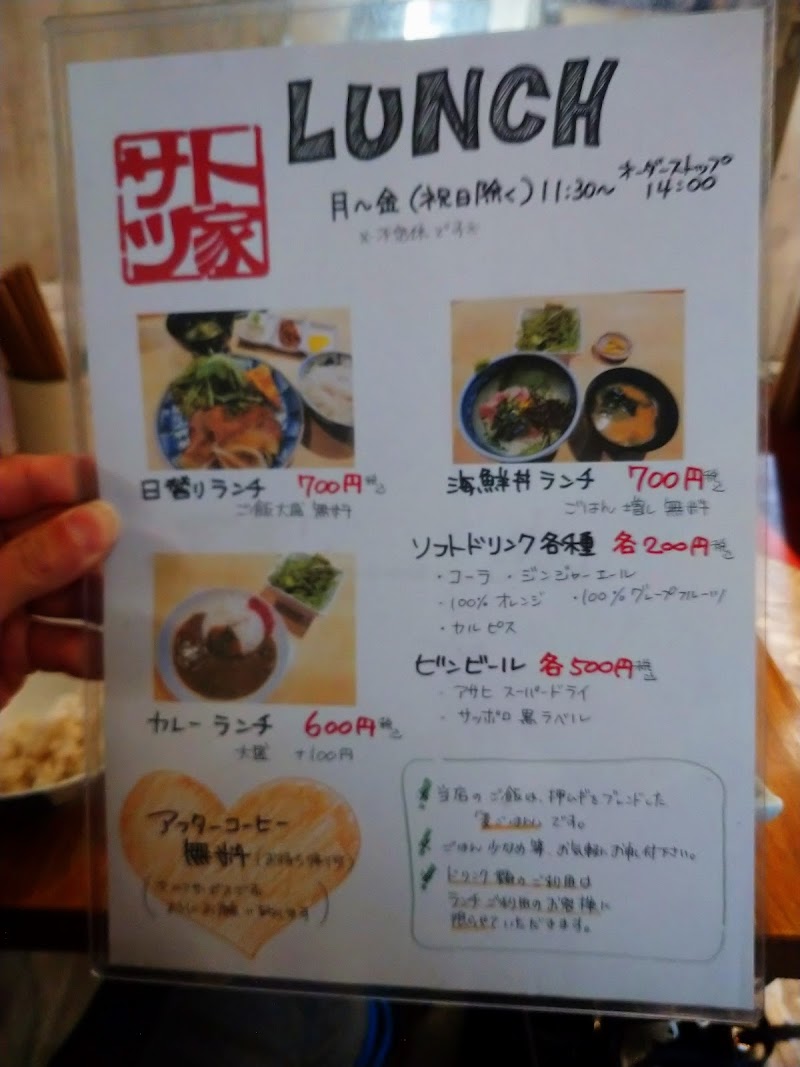 LUNCH
サトツ家
月～金(祝日除く)11:30～ オーダーストップ
14:00
※不定休です※
日替りランチ 700円税込
ご飯大盛 無料
海鮮丼ランチ 700円税込
ごはん 増し 無料
カレーランチ 600円税込
大盛 +100円
ソフトドリンク各種 各200円税込
・コーラ ・ジンジャーエール
・100% オレンジ ・100% グレープフルーツ
・カルピス
ビンビール 各500円税込
・アサヒ スーパードライ
・サッポロ 黒ラベル
アフターコーヒー
無料(お持ち帰り可)
当店の ご飯は、押ムギをブレンドした
麦ごはん です。
ごはん 少なめ 等、お気軽にお申し付け下さい。
ドリンク類のご利用は
ランチご利用のお客様に
限らせていただきます。